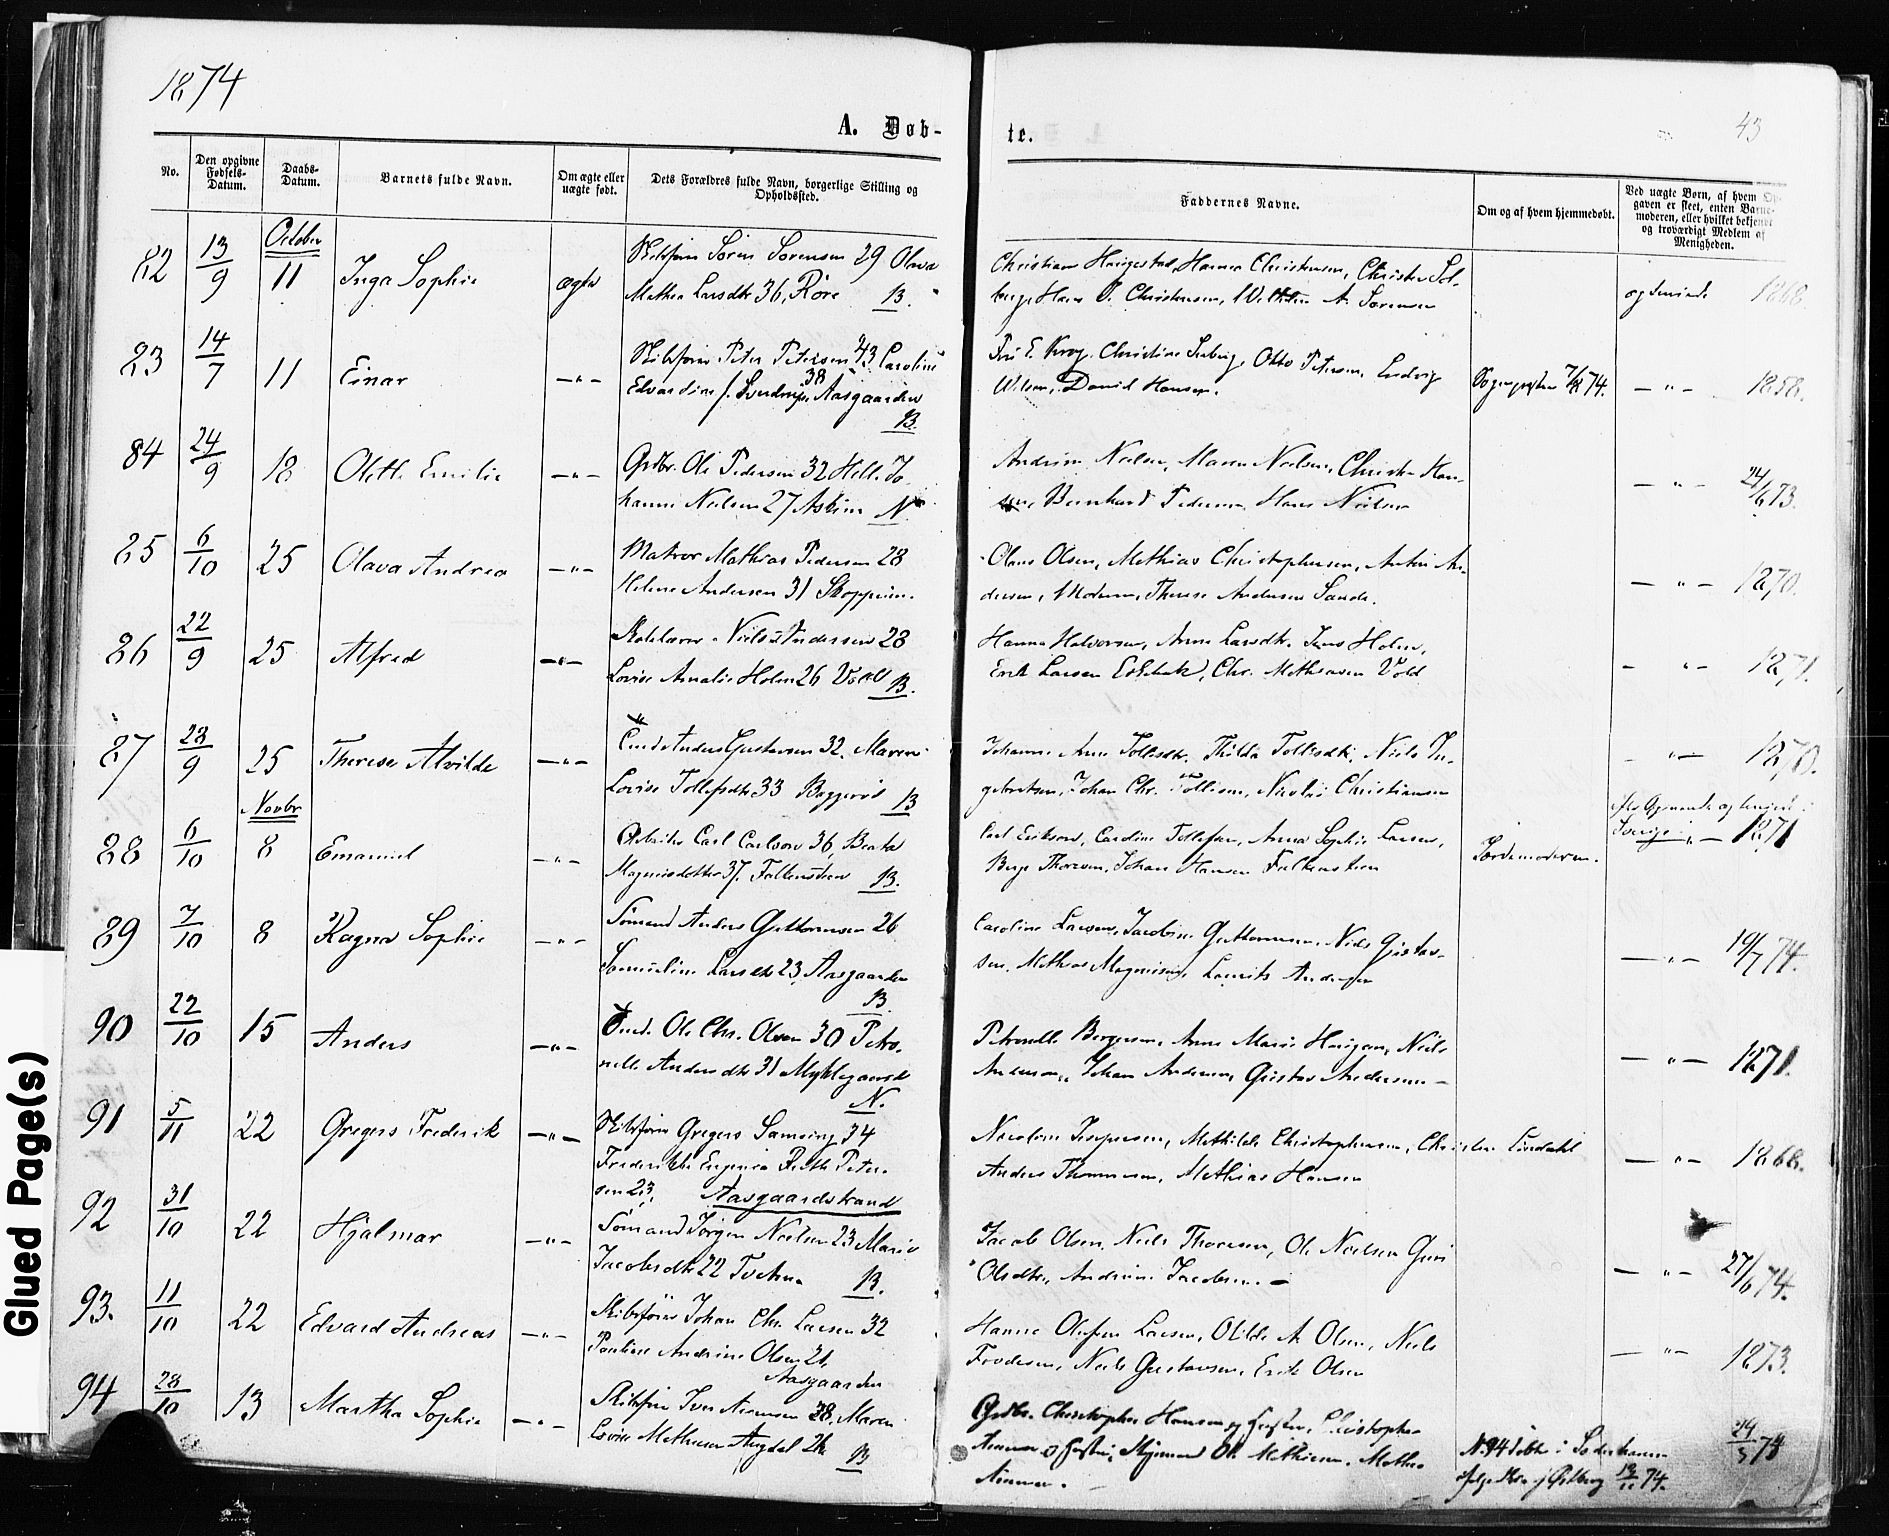 1874
43
A. Døb-
te.
No.
Den opgivne Fødsels-Datum.
Daabs-Datum.
Barnets fulde Navn.
Om ægte eller uægte født.
Dets Forældres fulde Navn, borgerlige Stilling og Opholdssted.
Faddernes Navne.
Om og af hvem hjemmedøbt.
Ved uægte Børn, af hvem Op-
gaven er skeet, enten Barne-
moderen, eller hvilket bekjendt
og troværdigt Medlem af
Menigheden.
October
82 13/9 11 Inga Sophie ægte Skibsfører Sören Sörensen 29 Olava
Mathea Larsdtr 36, Röre B.
Christian Haugestad, Hanna Christensen, Christen Sol-
berg, Hans O. Christensen, A. Sörensen
1868
83 14/7 11 Einar —"— Skibsfører Peter Petersen 43 Caroline
Edvardine f. Sverdrup 38 Aasgaarden
B.
Fru E. Krog, Christine Otto Petersen, Ludvig
Wilsen, David Hansen.
Sognepresten 7/8 74.
—"— 1858.
84 24/9 18 Olette Emilie —"— Grdbr. Ole Pedersen 32 Helle Jo-
hanne Neilsen 27 Askim N
Andrine Neilsen, Maren Neilsen, Christen Han-
sen, Bernhard Pedersen, Hans Neilsen
—"— 24/6 73.
85 6/10 25 Olava Andrea —"— Matros Mathias Pedersen 28
Helene Andersen 31 Skoppum.
Olaus Olsen, Mathias Christophersen, Anton An-
dersen, Moderen, Therese Andersen Sande.
—"— 1870.
86 22/9 25 Alfred —"— Skolelærer Neils Andersen 28
Lovise Amalie Holm 26 Vold B.
Hanna Halvorsen, Anne Larsdtr. Jens Holm,
Erik Larsen Chr. Mathiasen Vold
—"— 1871.
87 28/9 25 Therese Alvilde —"— Anders Gustavsen 32. Maren
Lovise Tollefsdtr 33 Baggerød B
Johanne Anne Tollefsdtr. Thilda Tollefsdtr, Neils In-
gebretsen, Johan Chr. Tollisen, Nicolai Christiansen
—"— 1870.
Novbr
88 6/10 8 Emanuel —"— Arbeider Carl Carlsen 36, Beata
Magnusdotter 37. Falkensteen B.
Carl Erikson, Caroline Tollefsen, Anna Sophie Larsen,
Berge Thoresen, Johan Hansen Falkensteen
Jordemoderen.
Sverige —"— 1871
89 7/10 8 Ragna Sophie —"— Sömand Anders Guttormsen 26
Samueline Larsdtr 23, Aasgaarden
B
Caroline Larsen, Jacobine Guttormsen, Neils Gustav-
sen, Mathias Magnusen, Laurits Andersen
—"— 19/7 74.
90 22/10 15 Anders —"— Ole Chr. Olsen 30 Petro-
nelle Andersdtr 31 Myklegaard
N.
Petronelle Borgersen, Anne Marie Haugan, Neils
Andersen, Johan Andersen, Gustav Andersen —
—"— 1871.
91 5/11 22 Gregers Frederik —"— Skibsfører Gregers Samsing 34
Frederikke Eugenia Peter-
sen 23, Aasgaardstrand
Jespersen, Mathilde Christophersen, Christen Lindahl
Anders Thommesen, Mathias Hansen
—"— 1868.
92 31/10 22 Hjalmar —"— Sömand Jörgen Neilsen 23 Marie
Jacobsdtr 22 Tveten B.
Jacob Olsen, Neils Thoresen, Ole Neilsen Guri
Olsdtr, Andrine Jacobsen. —
—"— 27/6 74.
93. 11/10 22 Edvard Andreas —"— Skibsfører Johan Chr. Larsen 32
Pauline Andrine Olsen 21,
Aasgaarden
Hanne Olufine Larsen, Otilde A. Olsen, Neils
Frodesen, Neils Gustavsen, Erik Olsen
—"— 1873.
94 28/10 13 Martha Sophie —"— Skibsfører Iver Arnesen 38, Maren
Lovise Mathisen Augdal B
Grdbr. Christopher Hansen og hustru, Christopher
og hustru, Ole Mathisen, Mathea
N. 94 døbt i
ifølge i Østberg 18/11 74.
24/3 74
Glued Page(s)